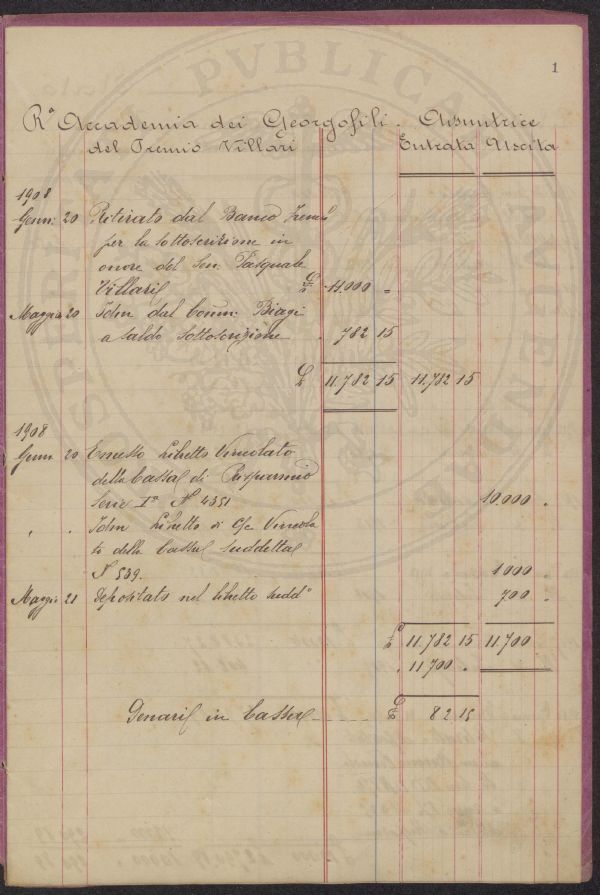 1
Rª Accademia dei Georgofili. Assuntrice
del Premio Villari Entrata Uscita
1908
Genn: 20 Ritirato dal Banco
per la sottoscrizione in
onore del Sen. Pasquale
Villari £ 11.000 "
Maggio 20 Idm dal Comm. Biagi
a saldo sottoscrizione " 782 15
£ 11,782 15 11,782 15
1908
Genn. 20 Emesso Libretto Vincolato
della Cassa di Risparmio
Serie Iª Nº 4351 10.000 "
" " Idm Libretto di C/c Vincola
to della Cassa suddetta
Nº 539. 1000 "
Maggio 21 Depositato nel libretto sudd° 700 "
£ 11,782 15 11,700
" 11,700 "
Denari in Cassa £ 82 15
PVBLICA